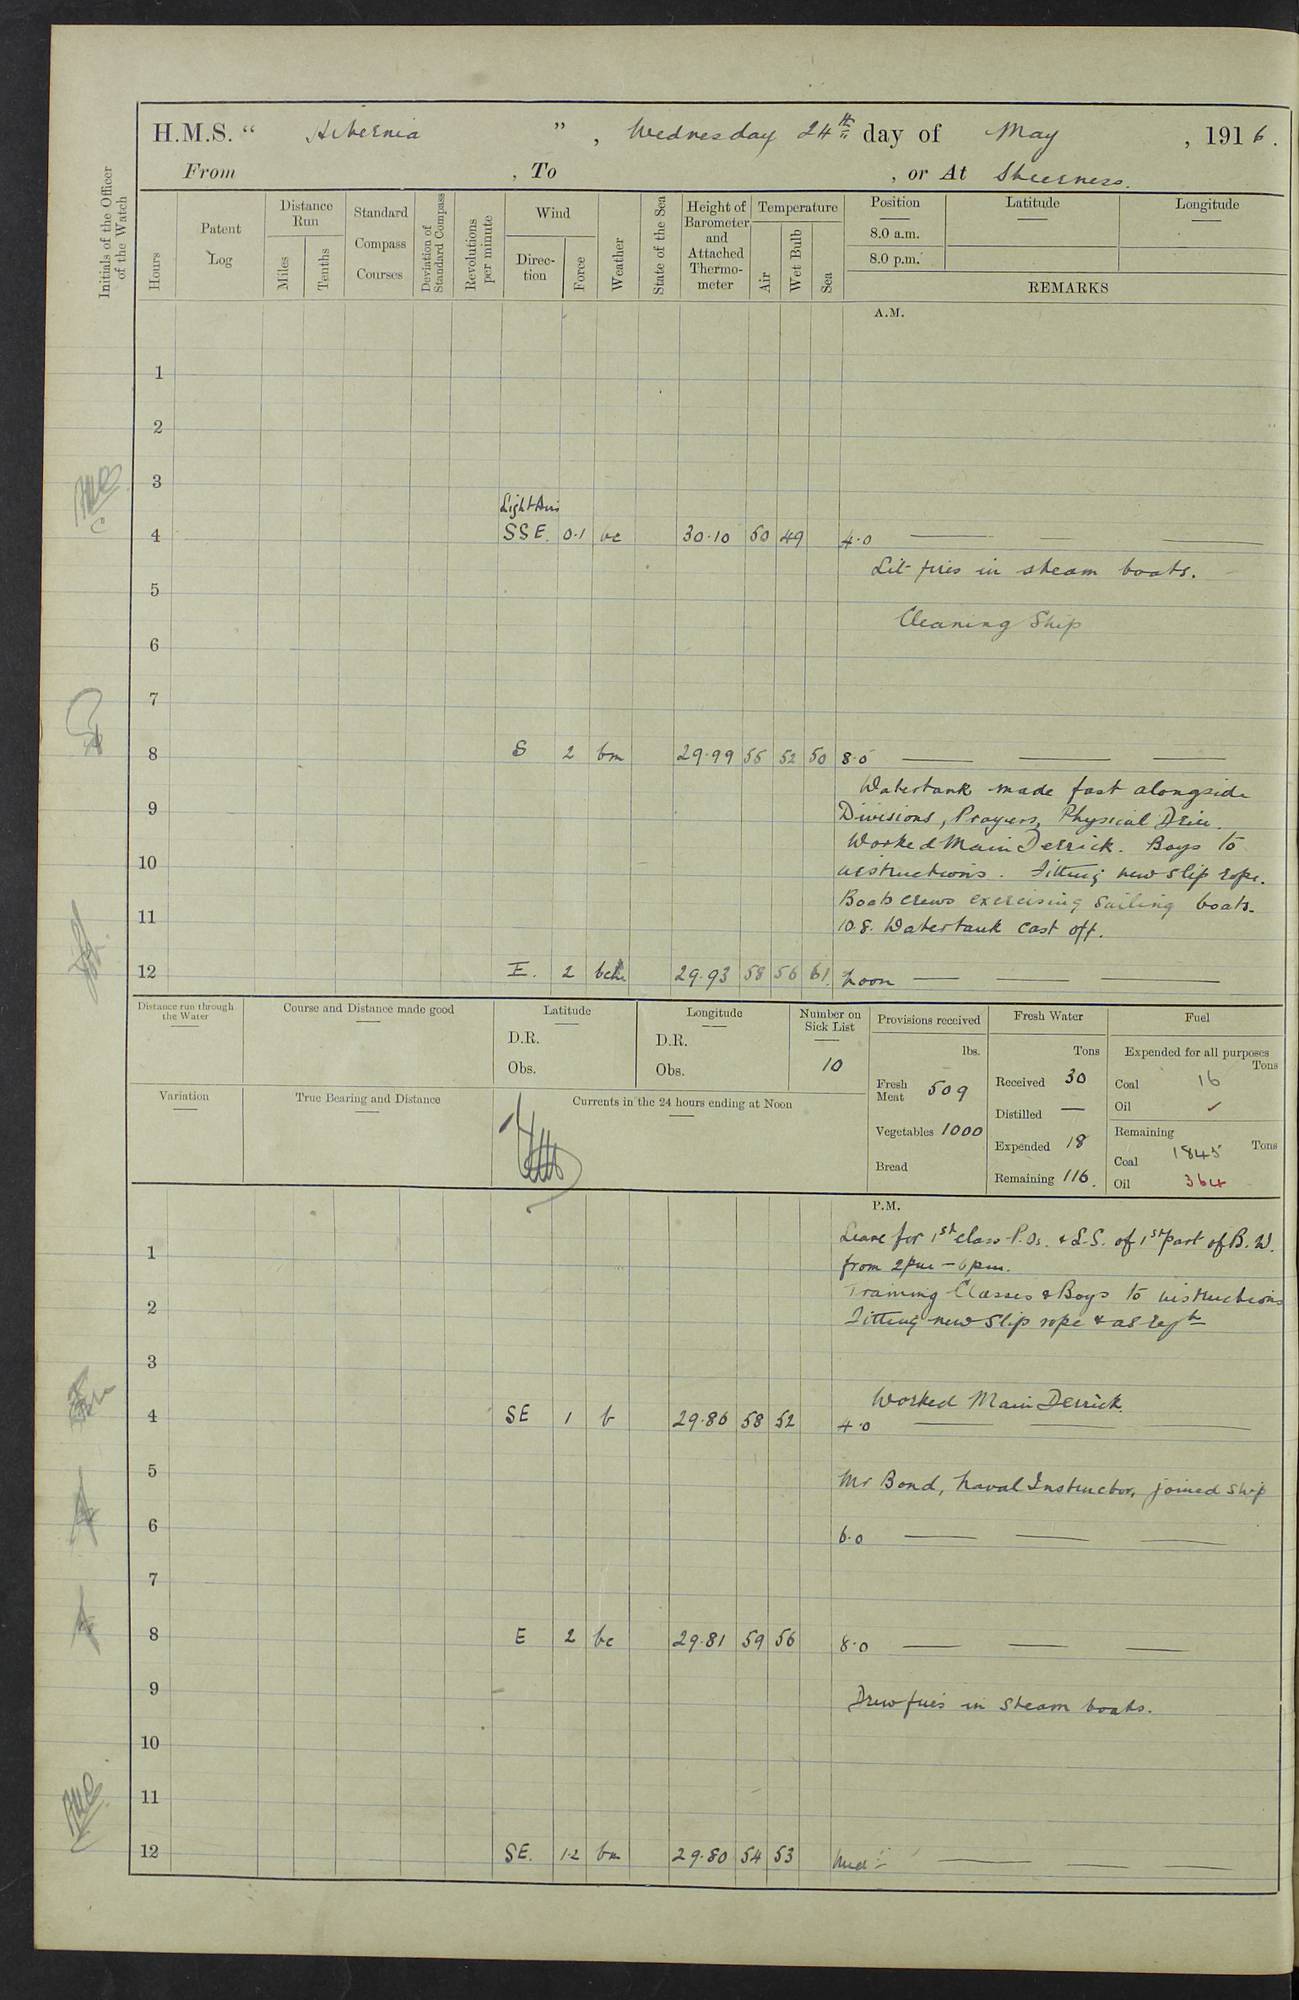 H.M.S. “ Hibernia ” , Wednesday 24th day of May , 1916.
From , To , or At Sheerness.
Initials of the Officer of the Watch
Hours
Patent Log
Distance Run
Miles
Tenths
Standard Compass Courses
Deviation of Standard Compass
Revolutions per minute
Wind
Direction
Force
Weather
State of the Sea
Height of Barometer and Attached Thermometer
Temperature
Air
Wet Bulb
Sea
Position
8.0 a.m.
8.0 p.m.
Latitude
Longitude
REMARKS
A.M.
1
2
3
Light Airs
4 SSE. 0.1 bc 30.10 50 49 4.0
Lit fires in steam boats.
5
Cleaning Ship
6
7
8 S 2 bm 29.99 55 52 50 8.0
Watertank made fast alongside
9 Divisions, Prayers, Physical Drill.
Worked Main Derrick. Boys to
10 instructions. Fitting new slip rope.
Boats crews exercising sailing boats.
11 10.8. Watertank cast off.
12 E. 2 29.93 58 56 61. Noon
Distance run through the Water
Course and Distance made good
Latitude
D.R.
Obs.
Longitude
D.R.
Obs.
Number on Sick List
10
Provisions received
lbs.
Fresh Meat 509
Vegetables 1000
Bread
Fresh Water
Tons
Received 30
Distilled —
Expended 18
Remaining 116.
Fuel
Expended for all purposes
Tons
Coal 16
Oil ✓
Remaining
Tons
Coal 1845
Oil 364
Variation
True Bearing and Distance
Currents in the 24 hours ending at Noon
P.M.
Leave for 1st class P.Os. & L.S. of 1st part of B. W.
1 from 2pm – 6pm.
Training Classes & Boys to instructions
2 Fitting new slip rope & as reqte
3
Worked Main Derrick
4 SE 1 b 29.86 58 52 4.0
5 Mr Bond, Naval Instructor, joined ship
6 6.0
7
8 E 2 bc 29.81 59 56 8.0
9 Drew fires in steam boats.
10
11
12 SE. 1.2 bm 29.80 54 53 Midt